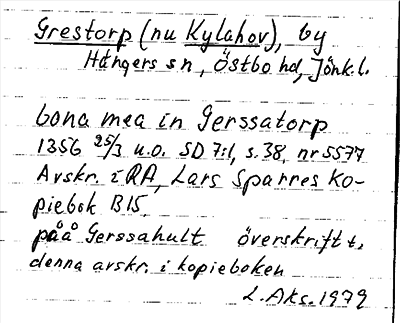 Grestorp (nu Kylahov), by
Hångers sn, Östbo hd, Jönk.l.
bona mea in Gerssatorp
1356 25/3 u.o. SD 7:1, s. 38, nr 5577
Avskr. i RA, Lars Sparres Ko-
piebok B15.
på å Gerssahult överskrift t.
denna avskr. i kopieboken
L. Aks. 1979